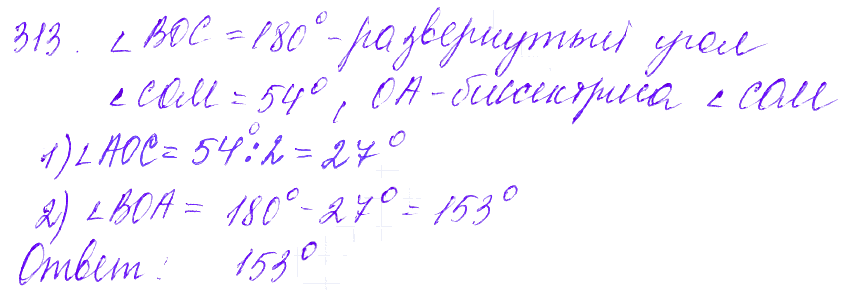 313. ∠BOC = 180° - развернутый угол
∠COM = 54°, OA - биссектриса ∠COM
1) ∠AOC = 54°:2 = 27°
2) ∠BOA = 180° - 27° = 153°
Ответ: 153°